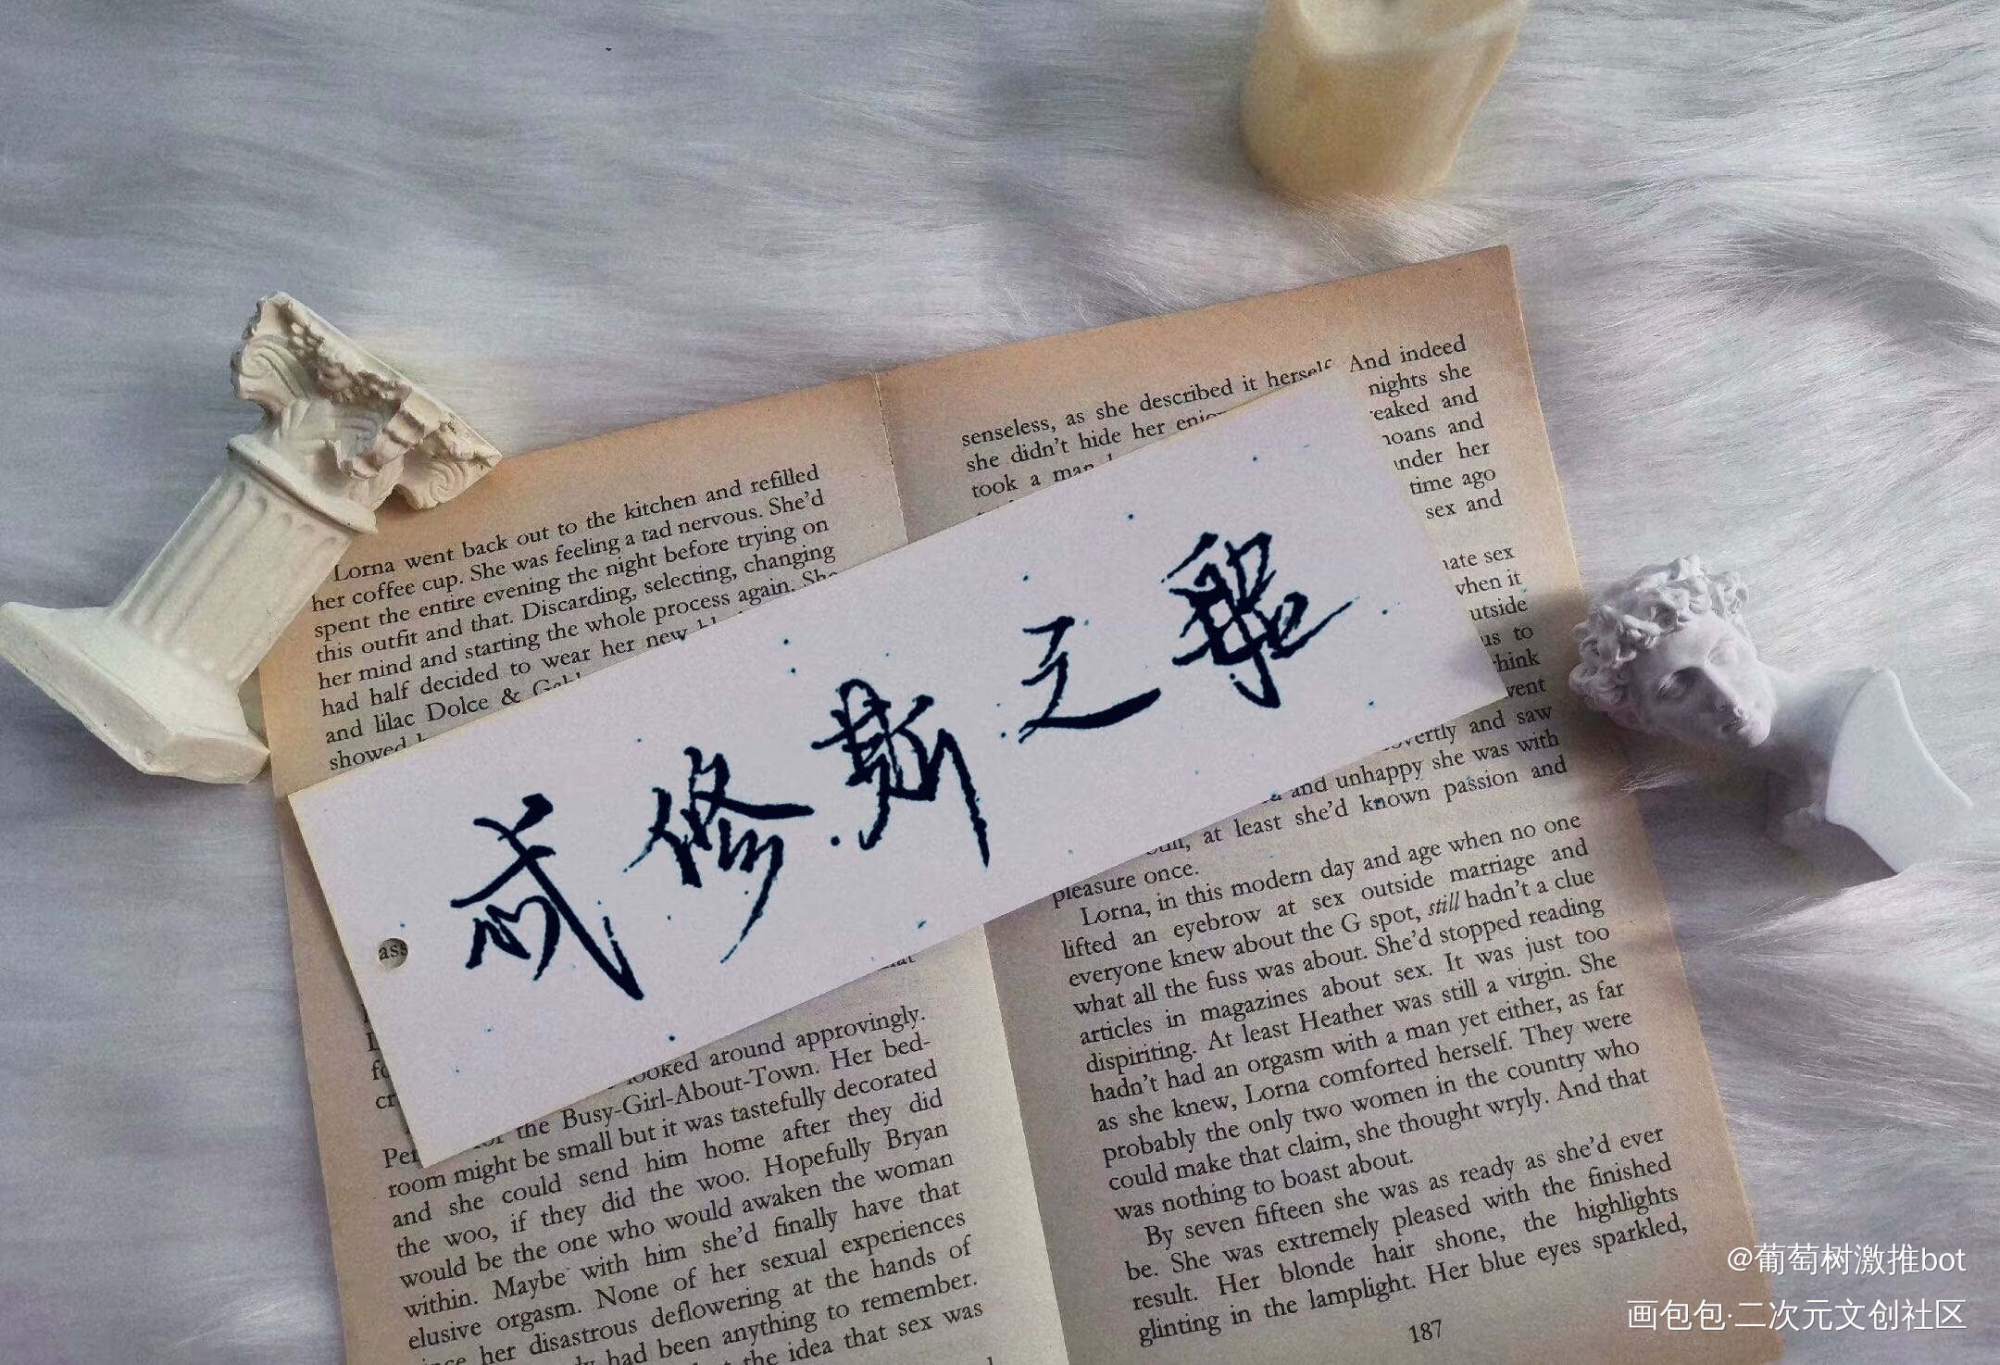 忒修斯之
Lorna went back out to the kitchen and refilled
her coffee cup. She was feeling a tad nervous. She'd
spent the entire evening the night before trying on
this outfit and that. Discarding, selecting, changing
her mind and starting the whole process again. She
had half decided to wear her new
and lilac Dolce &
showed
ass
looked around approvingly.
for the Busy-Girl-About-Town. Her bed-
room might be small but it was tastefully decorated
and she could send him home after they did
the woo, if they did the woo. Hopefully Bryan
would be the one who would awaken the woman
within. Maybe with him she'd finally have that
elusive orgasm. None of her sexual experiences
her disastrous deflowering at the hands of
had been anything to remember.
the idea that sex was
senseless, as she described it herself And indeed
she didn't hide her nights she
took a man and
and
her
time ago
sex and
sex
when it
to
and saw
and unhappy she was with
at least she'd known passion and
pleasure once.
Lorna, in this modern day and age when no one
lifted an eyebrow at sex outside marriage and
everyone knew about the G spot, still hadn't a clue
what all the fuss was about. She'd stopped reading
articles in magazines about sex. It was just too
dispiriting. At least Heather was still a virgin. She
hadn't had an orgasm with a man yet either, as far
as she knew, Lorna comforted herself. They were
probably the only two women in the country who
could make that claim, she thought wryly. And that
was nothing to boast about.
By seven fifteen she was as ready as she'd ever
be. She was extremely pleased with the finished
result. Her blonde hair shone, the highlights
glinting in the lamplight. Her blue eyes sparkled,
187
@葡萄树激推bot
画包包·二次元文创社区